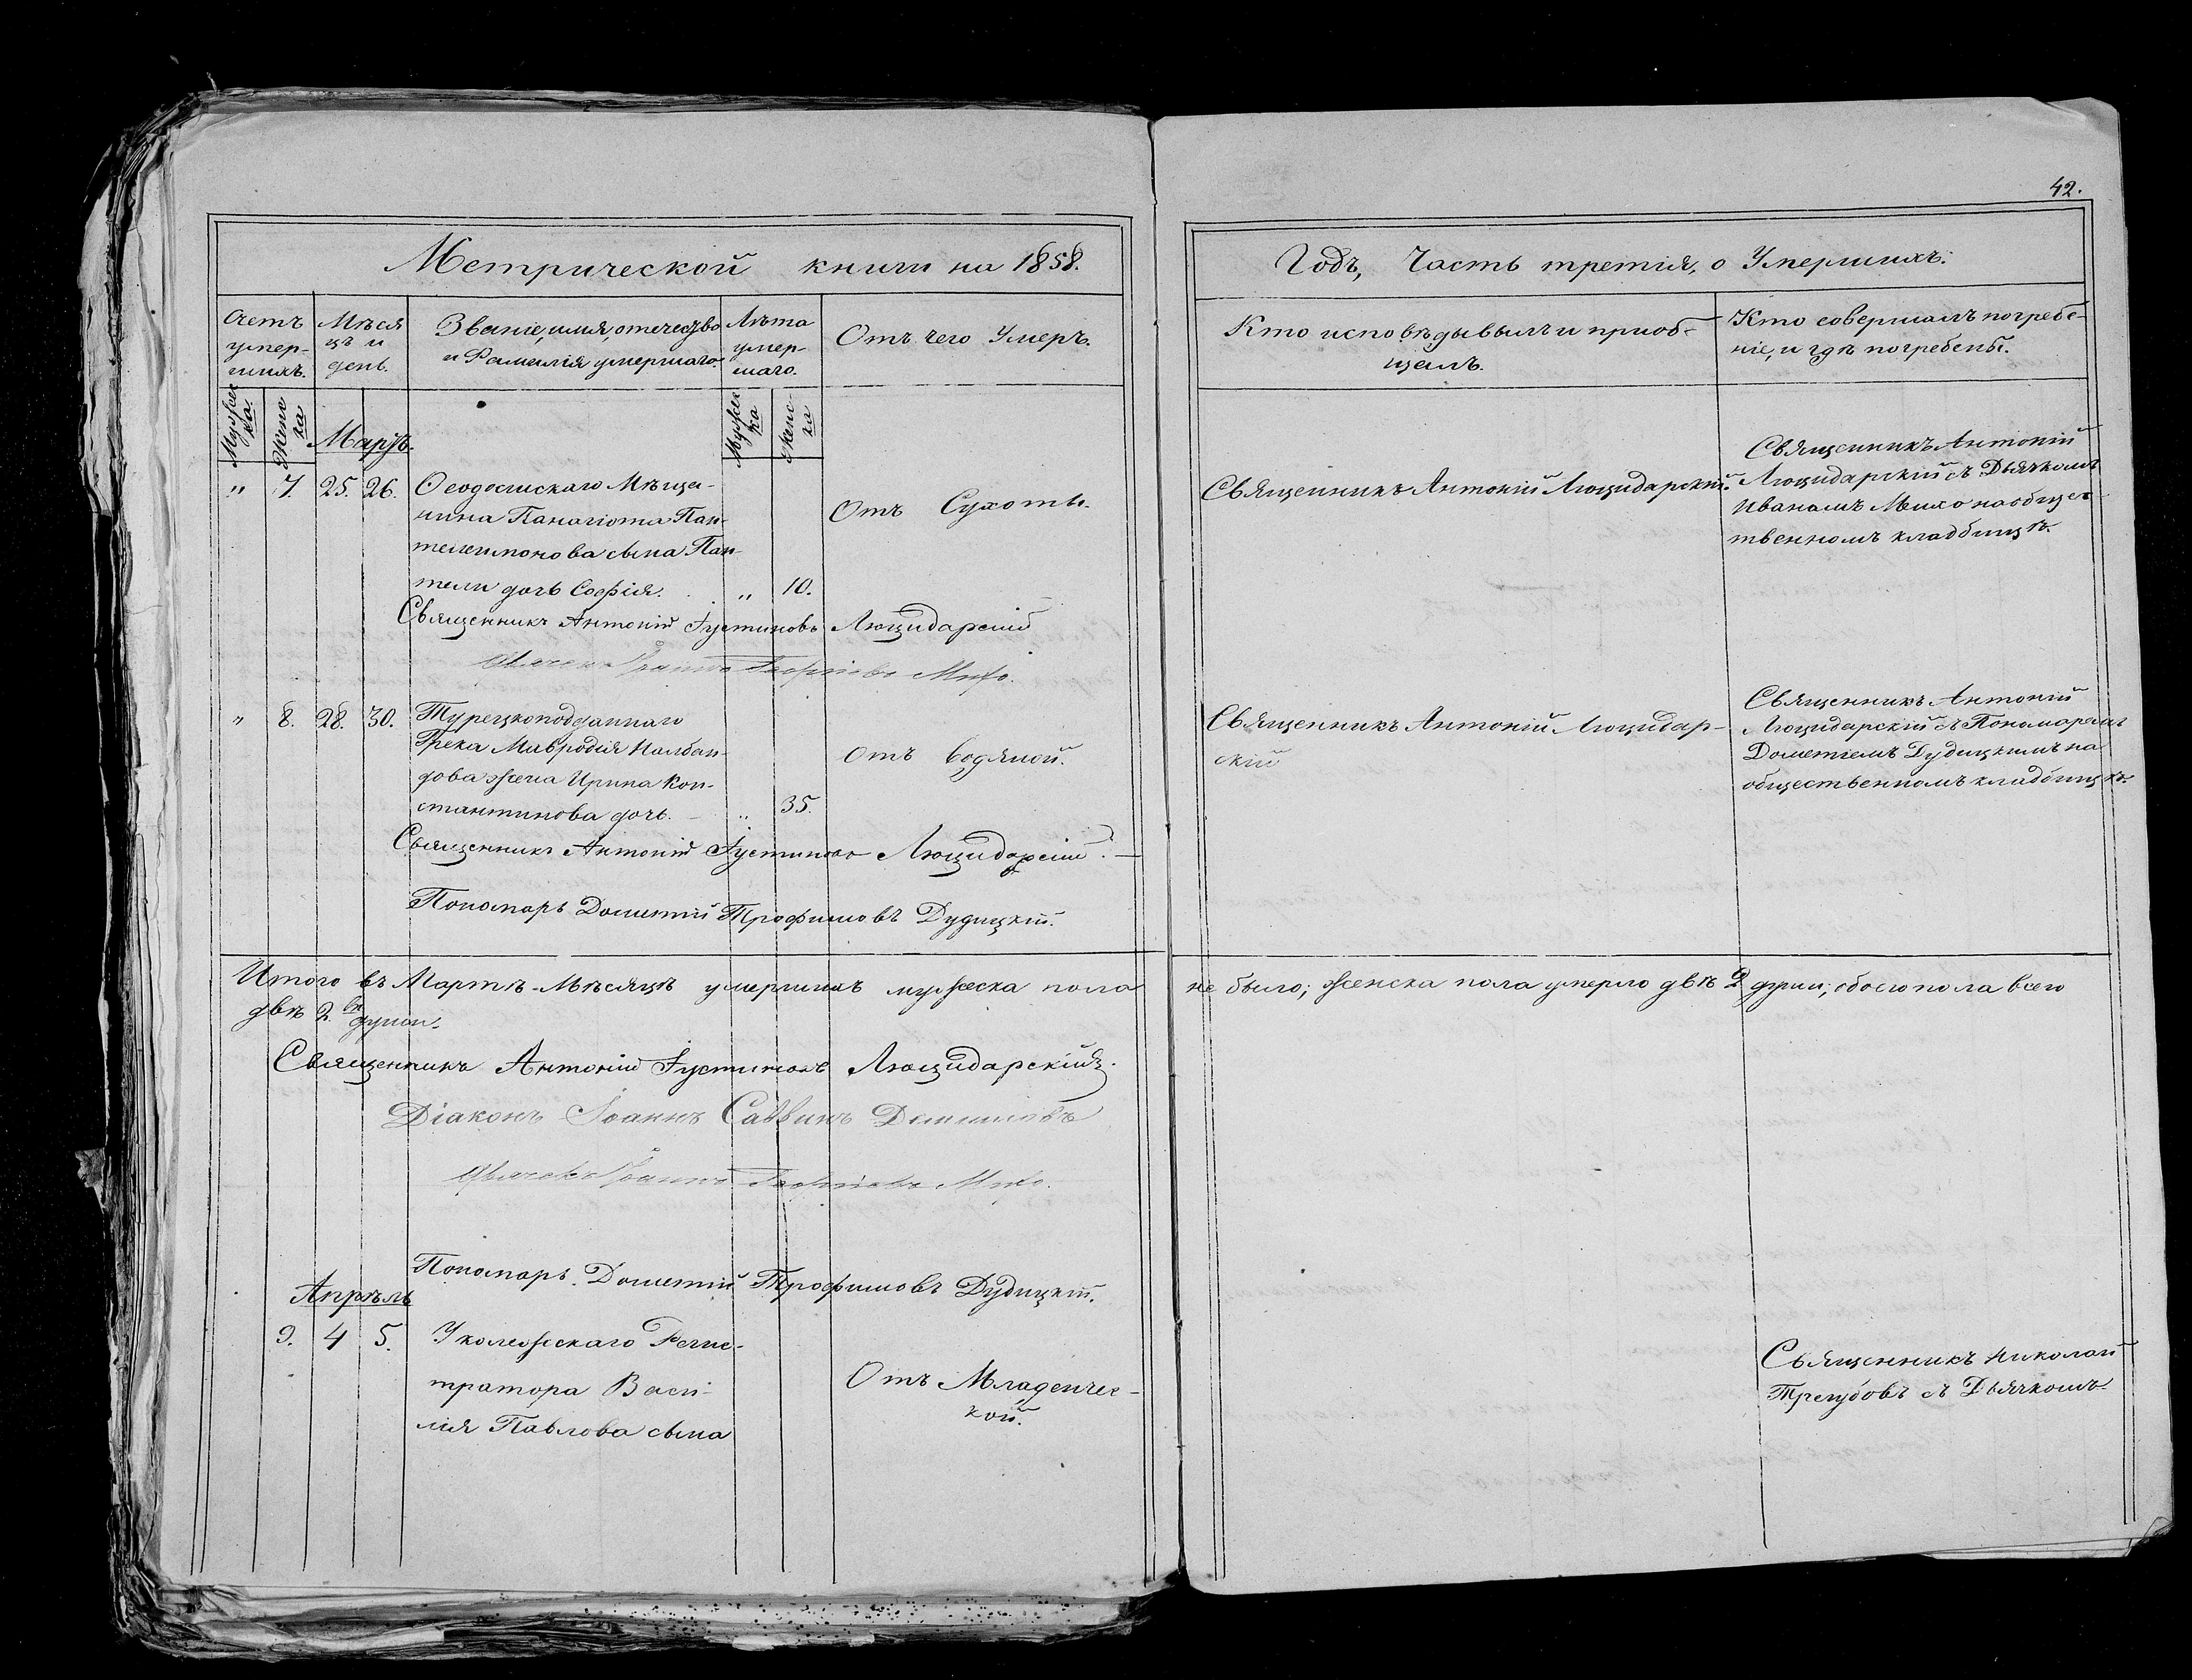 42.
Метрической книги на 1858.
Годъ, Часть третія, о Умершихъ:
Счетъ умер-шихъ.
Мѣся цъ и день.
Званіе, имя, отечество и Фамилія умершаго.
Лѣта умер-шаго.
Отъ чего Умеръ.
Кто исповѣдывылъ и приоб-щалъ.
Кто совершалъ погребе-ніе, и гдѣ погребены.
Мужес ка.
Женс ка
Мартъ.
Мужес ка
Женс-ка
„ 7. 25. 26.
Ѳеодосійскаго Мѣща-
нина Панагіота Пан-
телеимонова сына Пан-
тели дочь Софія. „ 10.
Отъ Сухоты.
Священникъ Антоній Люцидарскій.
Священникъ Антоній
Люцидарскій съ Дьячкомъ
Иваномъ Михо на общес-
твенномъ кладбищѣ.
Священникъ Антоній Іустиновъ Люцидарскій
Дьячекъ Іоаннъ Георгіевъ Михо.
„ 8. 28. 30.
Турецкоподданнаго
Грека Мавродія Налбан-
дова жена Ирина Кон-
стантинова дочь. „ 35.
Отъ водяной.
Священникъ Антоній Люцидар-
скій
Священникъ Антоній
Люцидарскій съ Пономаремъ
Дометіемъ Дудицкимъ на
общественномъ кладбищѣ.
Священникъ Антоній Іустиновъ Люцидарскій. —
Пономарь Дометій Трофимовъ Дудицкій.
Итого въ Мартѣ-Мѣсяцѣ умершихъ мужеска пола не было; женска пола умерло двѣ 2 души; обоего пола всего
двѣ 2. души.
Священникъ Антоній Іустиновъ Люцидарскій.
Діаконъ Іоаннъ Саввинъ
Дьячекъ Іоаннъ Георгіевъ Михо.
Пономарь Дометій Трофимовъ Дудицкій.
Апрѣль
9. 4 5.
У колежскаго Регис-
тратора Васи-
лія Павлова сына
Отъ Младенчес-
кой.
Священникъ Николай
Трегубовъ съ Дьячкомъ